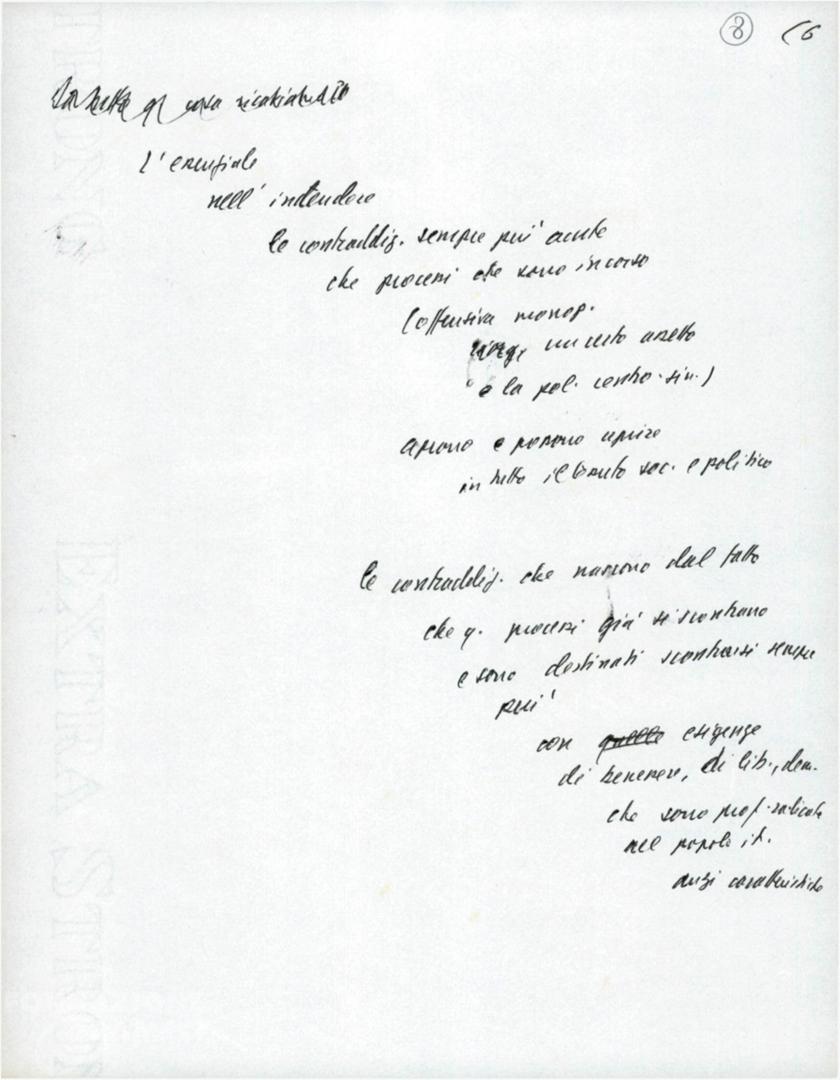 8 16
cosa
l'essenziale
nell'intendere
le contraddiz. sempre piú acute
che processi che sono in corso
(offensiva monop.
un certo assetto
e la pol. centro-sin.)
aprono e possono aprire
in tutto il tessuto soc. e politico
le contraddiz. che nascono dal fatto
che q. processi giá si scontrano
e sono destinati scontrarsi sempre
piú
con quelle esigenze
di benessere, di lib., dem.
che sono prof. radicate
nel popolo it.
anzi caratteristiche